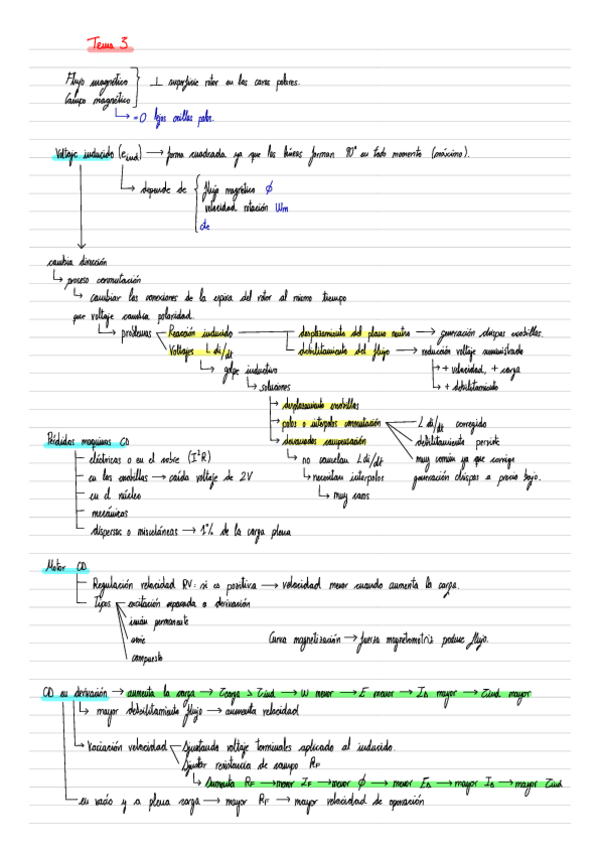 Tema 3
Flujo magnético
Campo magnético
⊥ superficie rotor en las caras polares.
→ =0 lejos orillas polos.
Voltaje inducido (e ind) → forma cuadrada ya que las líneas forman 90° en todo momento (máximo).
depende de
flujo magnético ϕ
velocidad rotación Wm
cte
cambia dirección
proceso conmutación
cambiar las conexiones de la espira del rotor al mismo tiempo
que voltaje cambia polaridad.
problemas
Reacción inducido
desplazamiento del plano neutro → generación chispas escobillas.
Voltajes L di/dt
debilitamiento del flujo → reducción voltaje suministrado
golpe inductivo
+ velocidad, + carga
soluciones
+ debilitamiento
desplazamiento escobillas
polos o interpolos conmutación
L di/dt corregido
Pérdidas maquinas CD
devanados compensación
debilitamiento persiste
eléctricas o en el cobre (I²R)
no cancelan L di/dt
muy común ya que corrige
en las escobillas → caída voltaje de 2V
necesitan interpolos
generación chispas a precio bajo.
en el núcleo
muy caros
mecánicas
dispersas o misceláneas → 1% de la carga plena
Motor CD
Regulación velocidad RV: si es positiva → velocidad menor cuando aumenta la carga.
Tipos
excitación separada o derivación
imán permanente
serie
Curva magnetización → fuerza magnetomotriz produce flujo.
compuesto
CD en derivación → aumenta la carga → τcarga > τind → W menor → E menor → IA mayor → τind mayor
mayor debilitamiento flujo → aumenta velocidad
Variación velocidad
Ajustando voltaje terminales aplicado al inducido.
Ajustar resistencia de campo RF
Aumenta RF → menor IF → menor ϕ → menor EA → mayor IA → mayor τind
en vacío y a plena carga → mayor RF → mayor velocidad de operación